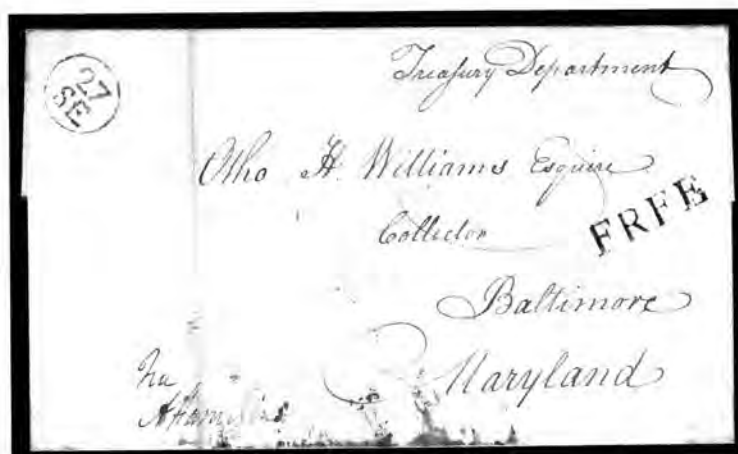 27
SE
Treaſury Department
Otho H. Williams Esquire
Collector
FRFE
Baltimore
Maryland